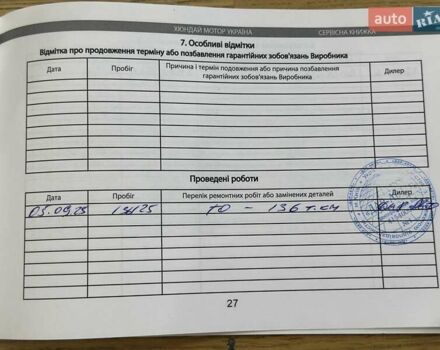 auto RIA
ХЮНДАЙ МОТОР УКРАЇНА СЕРВІСНА КНИЖКА
7. Особливі відмітки
Відмітка про продовження терміну або позбавлення гарантійних зобов'язань Виробника
Дата Пробіг Причина і термін подовження або причина позбавлення Дилер
гарантійних зобов'язань Виробника
Проведені роботи
Дата Пробіг Перелік ремонтних робіт або замінених деталей Дилер
ТО – 136 т. км
27